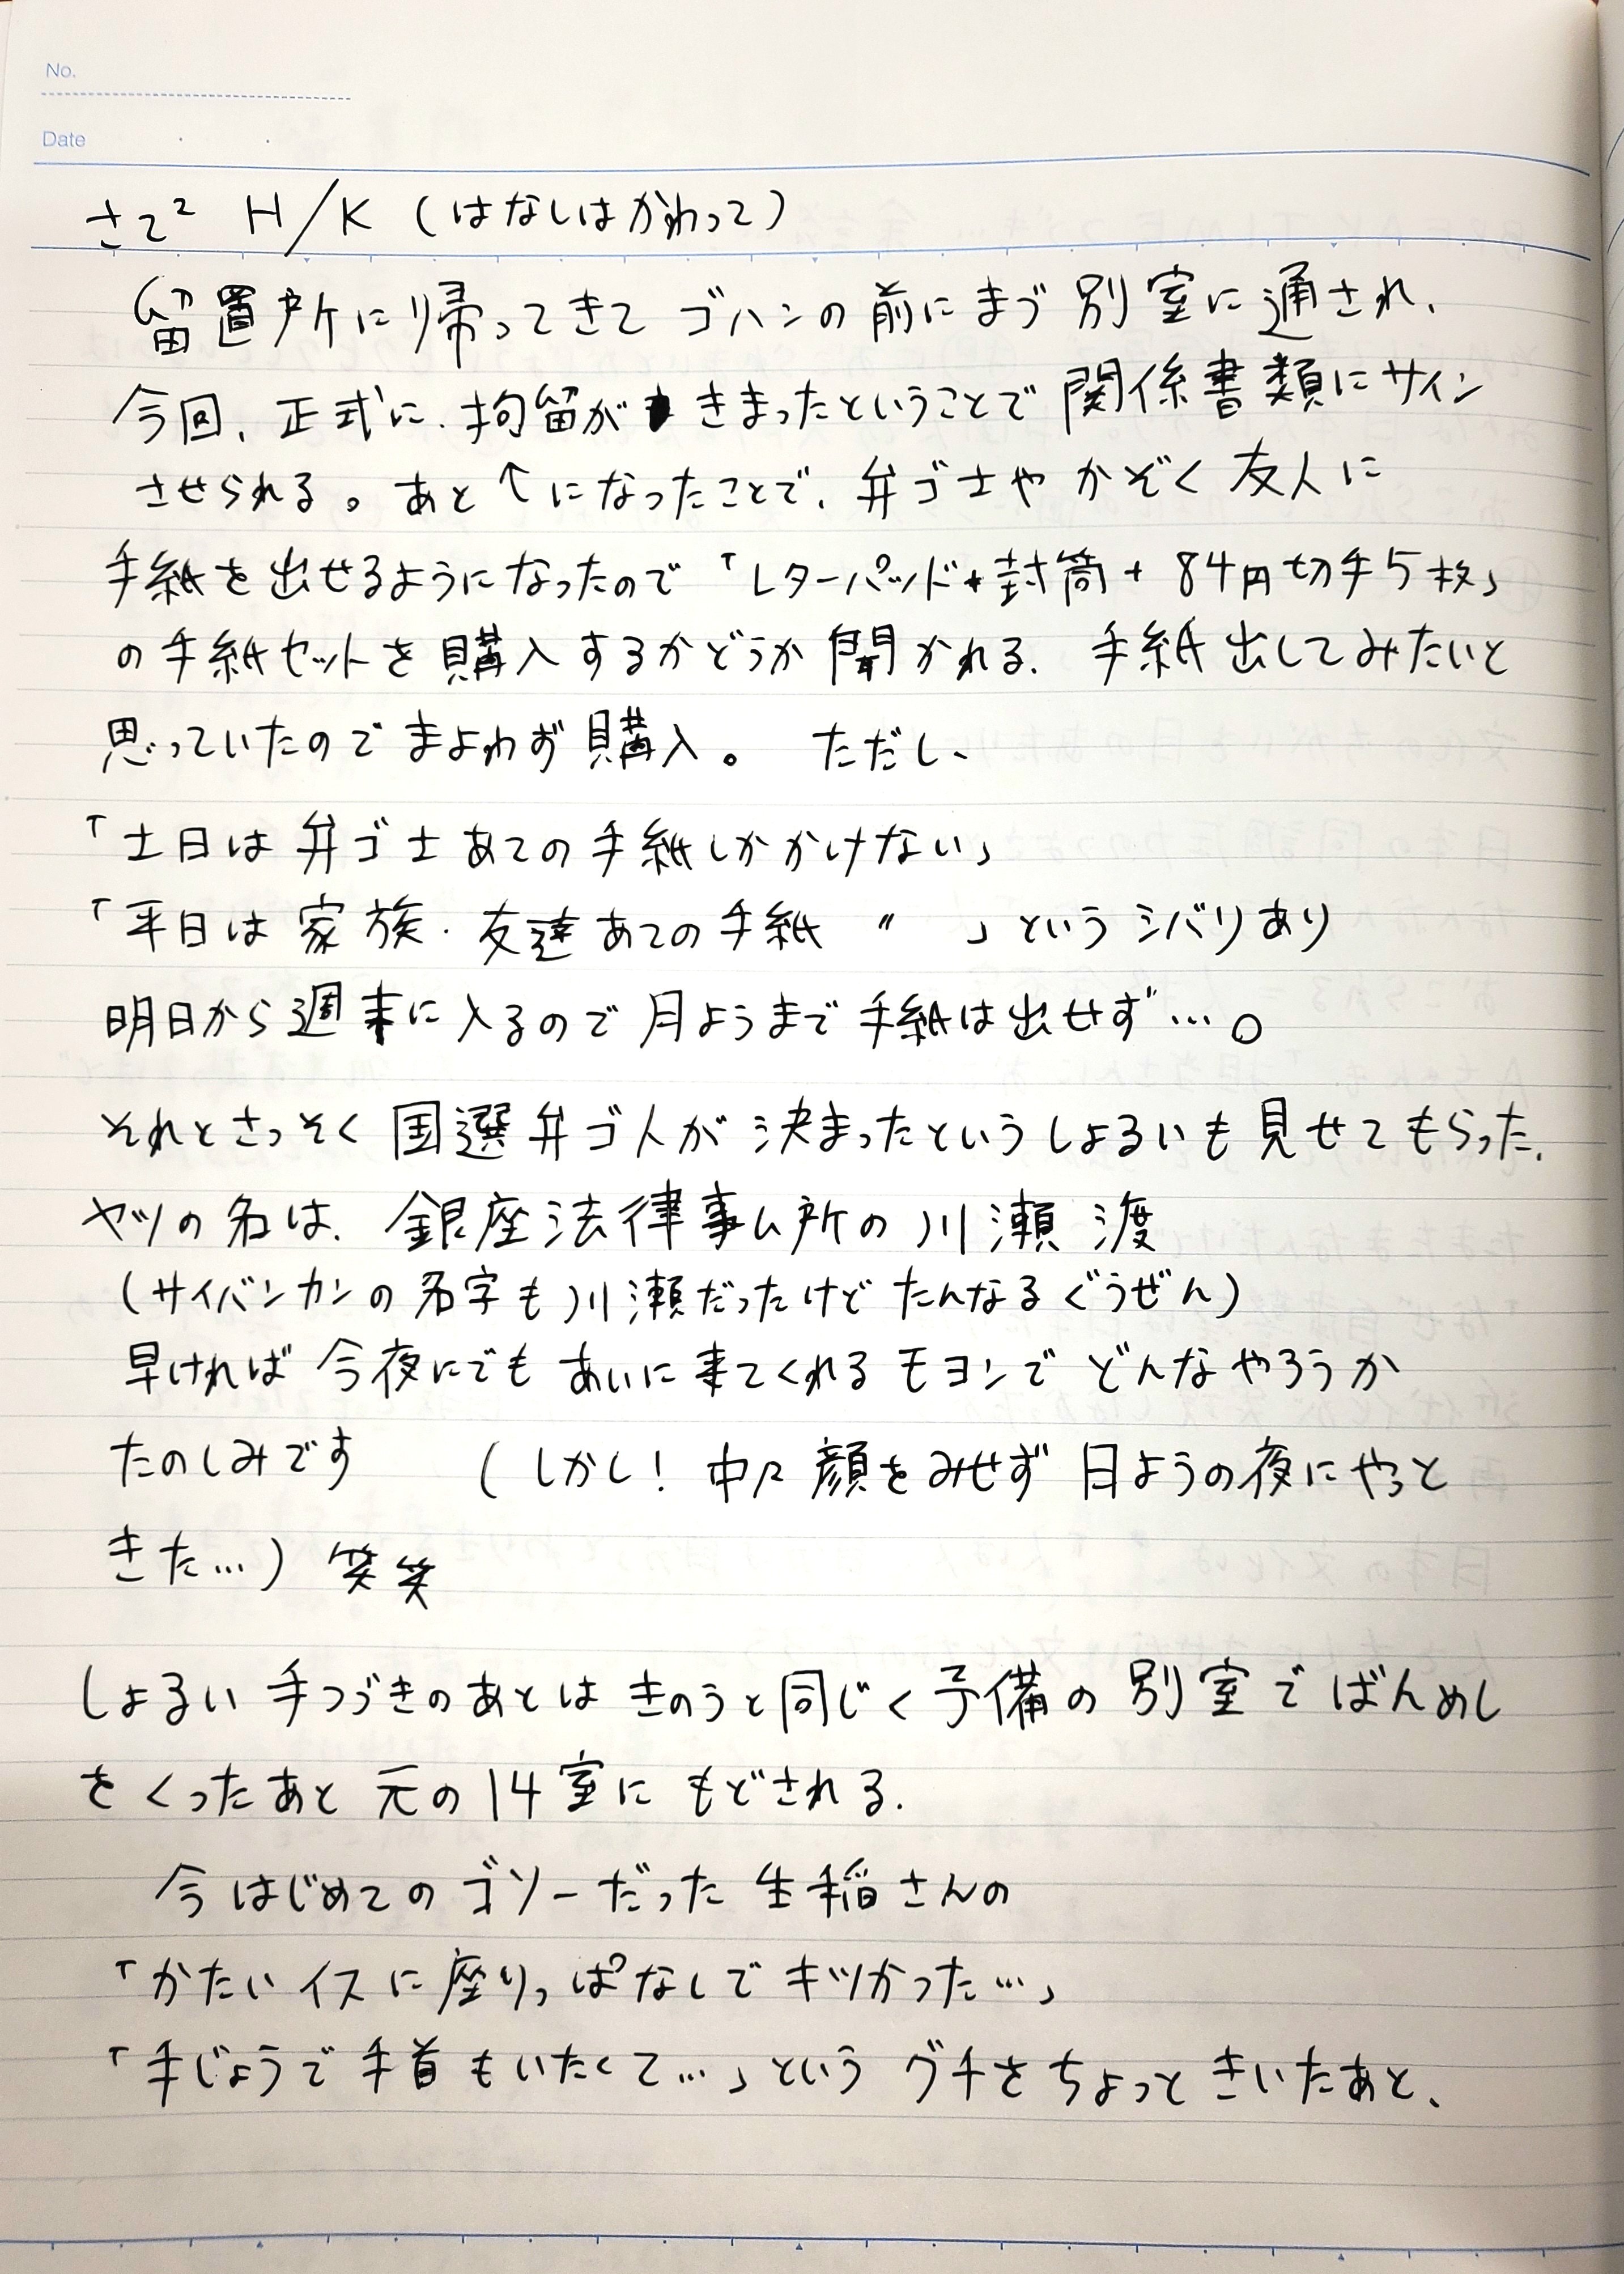 No.
Date
さて² H/K (はなしはかわって)
留置所に帰ってきて ゴハンの前にまず 別室に通され、
今回、正式に、拘留が きまったということで 関係書類にサイン
させられる。あと ↑になったことで、弁ゴ士や かぞく 友人に
手紙を出せるようになったので「レターパッド+封筒+84円切手5枚」
の手紙セットを購入するかどうか 聞かれる. 手紙出してみたいと
思っていたのでまよわず購入。 ただし、
「土日は弁ゴ士あての手紙しかかけない」
「平日は家族・友達あての手紙 〃 」というシバリあり
明日から週末に入るので月ようまで手紙は出せず…。
それとさっそく国選弁ゴ人が決まったというしょるいも見せてもらった.
ヤツの名は、銀座法律事ム所の川瀬 渡
(サイバンカンの名字も川瀬だったけど たんなるぐうぜん)
早ければ今夜にでもあいに来てくれるモヨンで どんなやろうか
たのしみです (しかし! 中々顔をみせず 日ようの夜にやっと
きた…) 笑笑
しょるい手つづきのあとは きのうと同じく予備の別室でばんめし
をくったあと 元の14室に もどされる.
今はじめてのゴソーだった 生稲さんの
「かたいイスに座りっぱなしでキツかった…」
「手じょうで手首もいたくて…」というグチをちょっときいたあと、